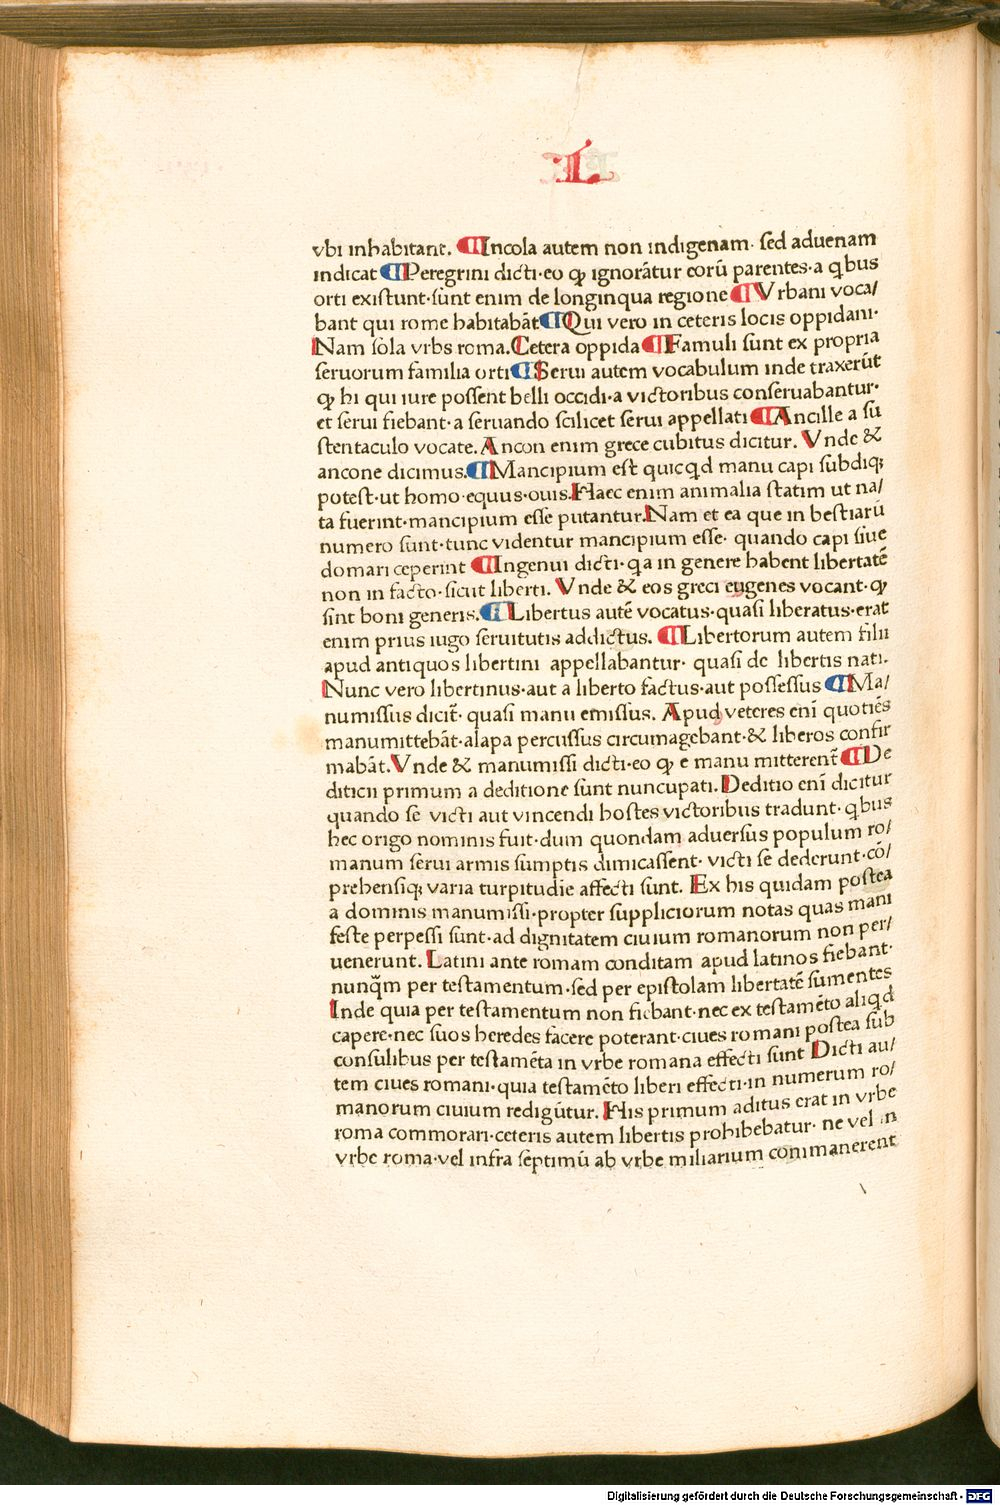 L
vbi inhabitant. ¶Incola autem non indigenam· sed aduenam
indicat ¶Peregrini dicti·eo ꝙ ignorātur eorū parentes·a qbus
orti existunt·sunt enim de longinqua regione ¶Vrbani voca/
bant qui rome habitabāt ¶Qui vero in ceteris locis oppidani·
Nam sola vrbs roma. Cetera oppida ¶Famuli sunt ex propria
seruorum familia orti ¶Serui autem vocabulum inde traxerūt
ꝙ hi qui iure possent belli occidi·a victoribus conseruabantur·
et serui fiebant·a seruando scilicet serui appellati ¶Ancille a su
stentaculo vocate. Ancon enim grece cubitus dicitur. Vnde &
ancone dicimus. ¶Mancipium est quicqd manu capi subdiqꝫ
potest·ut homo·equus·ouis. Haec enim animalia statim ut na/
ta fuerint·mancipium esse putantur. Nam et ea que in bestiarū
numero sunt·tunc videntur mancipium esse· quando capi siue
domari ceperint ¶Ingenui dicti·qa in genere habent libertatē
non in facto·sicut liberti. Vnde & eos greci eugenes vocant·ꝙ
sint boni generis. ¶Libertus autē vocatus·quasi liberatus·erat
enim prius iugo seruitutis addictus. ¶Libertorum autem filii
apud antiquos libertini appellabantur· quasi de libertis nati.
Nunc vero libertinus·aut a liberto factus·aut possessus ¶Ma/
numissus dicit̄· quasi manu emissus. Apud veteres enī quotiēs
manumittebāt·alapa percussus circumagebant·& liberos confir
mabāt. Vnde & manumissi dicti·eo ꝙ e manu mitterent̄ ¶De
diticii primum a deditione sunt nuncupati. Deditio enī dicitur
quando se victi aut vincendi hostes victoribus tradunt· qbus
hec origo nominis fuit·dum quondam aduersus populum ro/
manum serui armis sumptis dimicassent· victi se dederunt·cō/
prehensiqꝫ varia turpitudie affecti sunt. Ex his quidam postea
a dominis manumissi·propter suppliciorum notas quas mani
feste perpessi sunt·ad dignitatem ciuium romanorum non per/
uenerunt. Latini ante romam conditam apud latinos fiebant·
nunq̄m per testamentum·sed per epistolam libertatē sumentes
Inde quia per testamentum non fiebant·nec ex testamēto aliqd
capere·nec suos heredes facere poterant·ciues romani postea sub
consulibus per testamēta in vrbe romana effecti sunt Dicti au/
tem ciues romani·quia testamēto liberi effecti·in numerum ro/
manorum ciuium redigūtur. His primum aditus erat in vrbe
roma commorari·ceteris autem libertis prohibebatur· ne vel in
vrbe roma·vel infra septimū ab vrbe miliarium commanerent
Digitalisierung gefördert durch die Deutsche Forschungsgemeinschaft - DFG